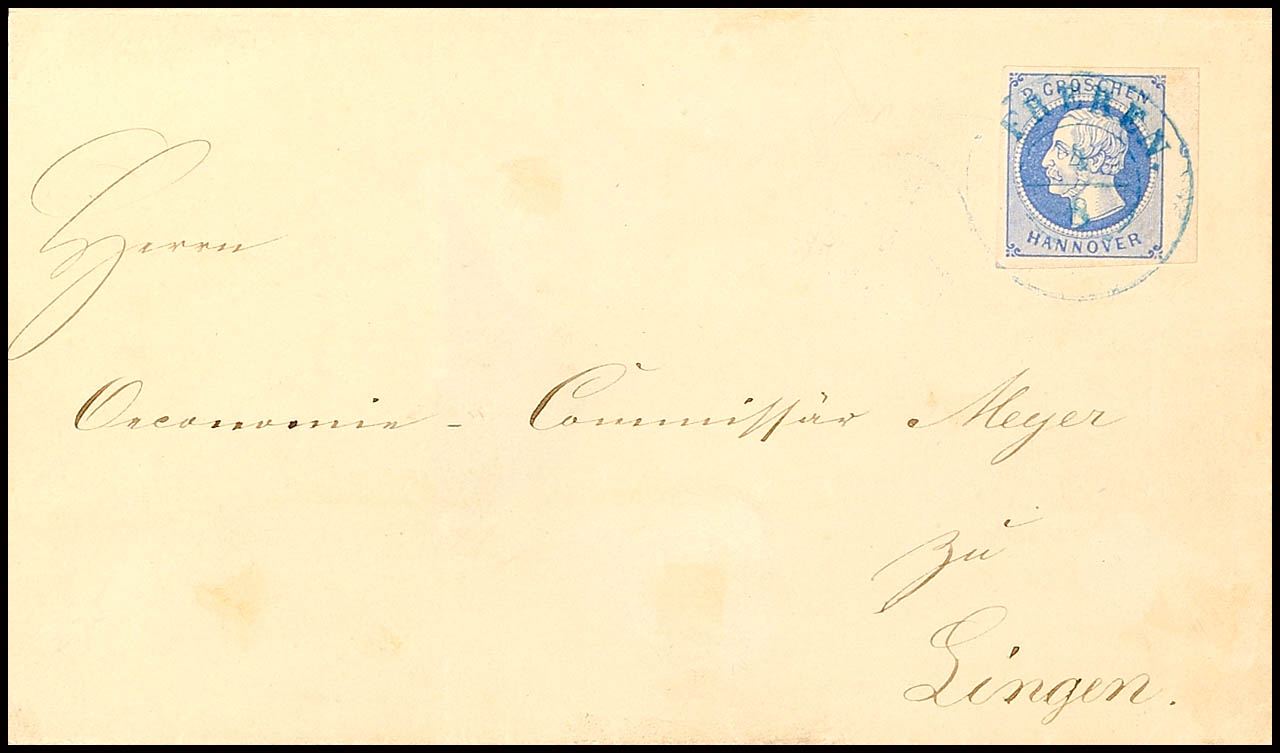 2 GROSCHEN
FREREN.
8
HANNOVER
Herrn
Oeconomie - Commissär Meyer
zu
Lingen.